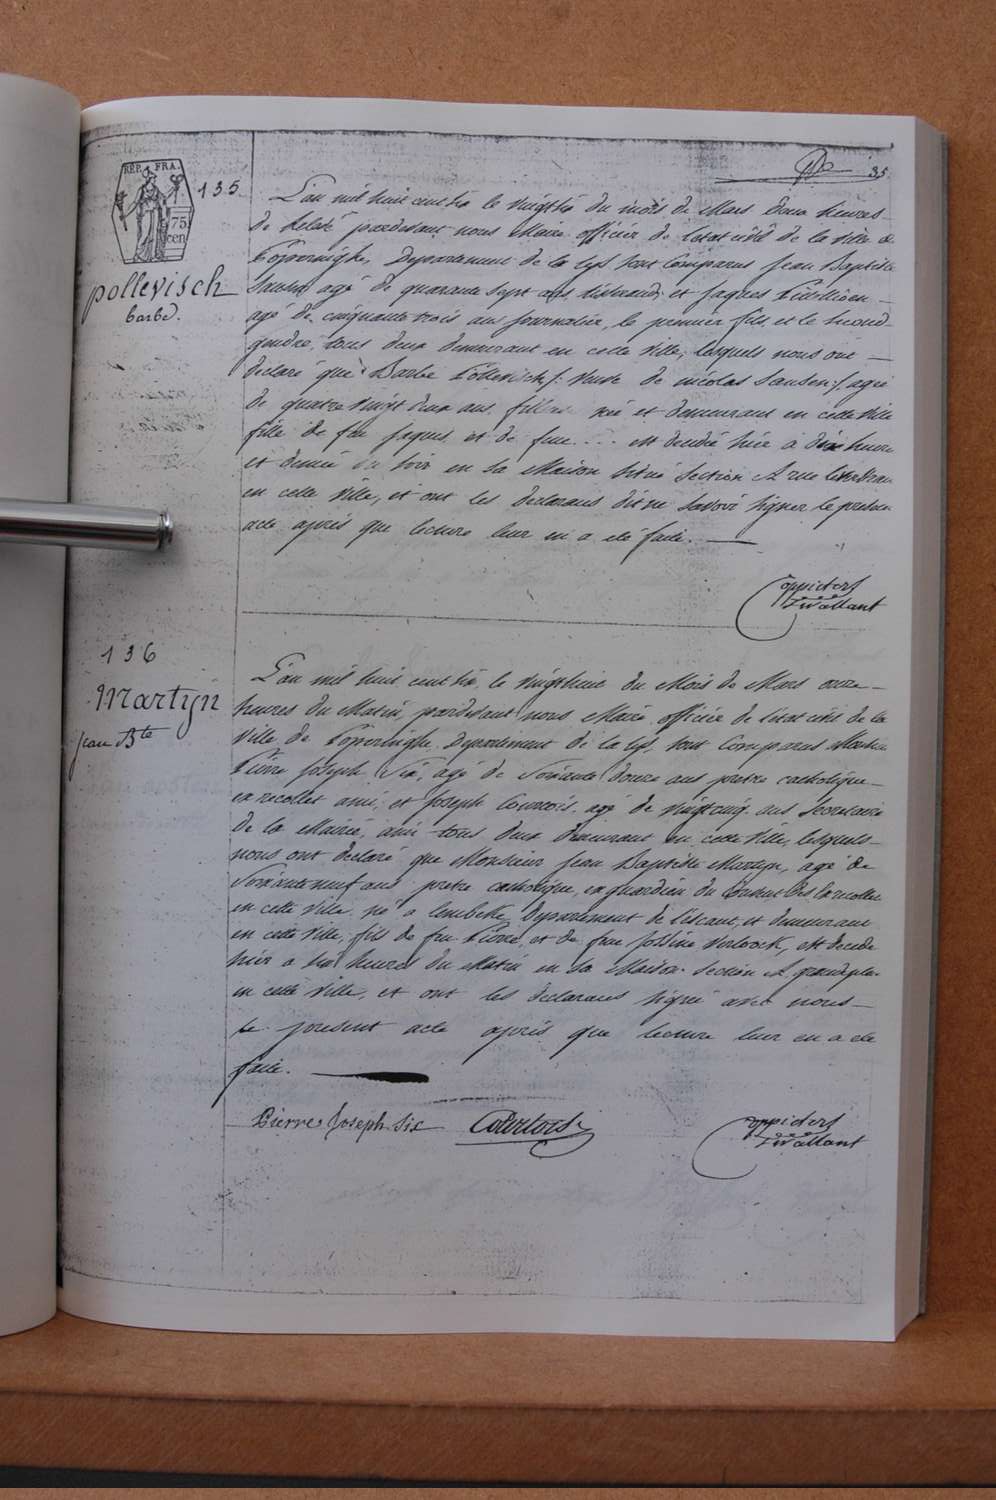 35
REP. FRA.
75
cen
135
pollevisch
barbe.
L'an mil huit cent six le vingt six du mois de Mars deux heures
de relevé pardevant nous Maire officier de l'etat civil de la ville de
Poperinghe, Departement de la Lys sont Comparus Jean Baptiste
agé de quarante sept ans et Jaques
agé de cinquante trois ans journalier, le premier fils, et le second
gendre, tous deux demeurant en cette ville, lesquels nous ont
declaré que Barbe Pollevisch /: veuve de nicolas Sansen :/ agée
de quatre vingt deux ans, née et demeurant en cette ville
fille de feu Jaques et de feue ... est decedée hier à dix heures
et demie du soir en sa Maison situé Section A rue
en cette ville, et ont les declarans dit ne savoir signer le present
acte après que lecture leur en a eté faite.
Coppieters
Twallant
136
Martijn
Jean Bte
L'an mil huit cent six, le vingt huit du Mois de Mars onze
heures du Matin, pardevant nous Maire officier de l'etat civil de la
ville de Poperinghe, Departement de la Lys, sont Comparus Monsieur
Pierre Joseph Six, agé de Soixante douze ans pretre catholique
ex recollet ami, et Joseph Courtois agé de vingt cinq ans Secretaire
de la Mairie, ami tous deux demeurant en cette ville, lesquels
nous ont declaré que Monsieur Jean Baptiste Martijn, agé de
Soixante neuf ans pretre catholique, ex guardien du Couvent des Recollets
en cette ville, né a Lembeke Departement de l'escaut, et demeurant
en cette ville, fils de feu Pierre, et de feue Josine Verloock, est decede
hier a six heures du Matin en sa Maison Section A grande place
en cette ville, et ont les declarans signé avec nous
le present acte après que lecture leur en a eté
faite.
Pierre Joseph Six Courtois
Coppieters
Twallant